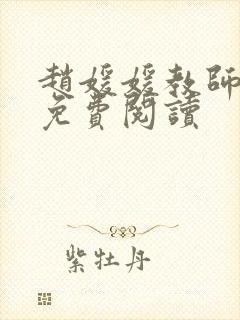 趙媛媛教師
免費閱讀
紫牡丹